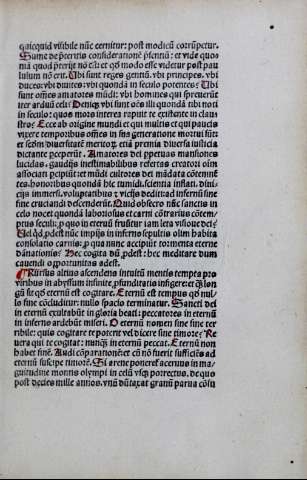 quicquid visibile nūc cernitur: post modicū corrūpetur.
Sume de p̄teritis consideratione p̄sentiū: et vide quo
mō quod preijt nō est: et qd modo esse videtur post pau
lulum nō erit. Ubi sunt reges gentiū. vbi principes. vbi
duces: vbi diuites: vbi quondā in seculo potentes? Ubi
sunt om̄es amatores mūdi: vbi homines qui spreuerūt
iter arduū celi? Deniq; vbi sunt oēs illi quondā tibi noti
in seculo: quos mors interea rapuit te existente in claus
stro? Ecce ab origine mundi et qui multo et qui paucis
vixere temporibus om̄es in sua generatione mortui sūt: et
et scdm̄ diuersitatē meritor̄ etiā premia diuersa iusticia
dictante perceperūt. Amatores dei perpetuas mansiones
lucidas. gaudijs inestimabilibus refertas creatori suim
associati percipiūt: et mūdi cultores dei mādata cōtemnē
tes. honoribus quondā hic tumidi. scientia inflati. diui
cijs immersi. voluptatibus et vicijs dediti: ad infernū sine
fine cruciandi descenderūt. Quid obsecro nūc sanctis in
celo nocet quondā laboriosus et carni cōtrarius cōtem
ptus seculi: p quo in eternū fruūtur iam leta visione dei?
Uel qd pdest nūc impijs in inferno sepultis olim habita
consolatio carnis: p qua nunc accipiūt tormenta eterne
dānationis? Hec cogita dū pdest: hec meditare dum
cauendi opportunitas adest.
Rursus altius ascendens intuitū mentis tempta pro
viribus in abyssum infinite. pfunditatis infiger: et q̄ lon
gū sit qd eternū est cogitare. Eternū est tempus qd nul
lo fine cōcluditur: nullo spacio terminatur. Sancti dei
in eternū exultabūt in gloria beati: peccatores in eternū
in inferno ardebūt miseri. O eternū nomen sine fine ter
ribile: quis cogitare te poterit vel dicere sine timore? Re
uera qui te cogitat: nunq̄ in eternū peccat. Eternū non
habet finē. Audi cōparationē: et cū nō fuerit sufficiēs ad
eternū suscipe timorē. Si arene poneret aceruus in ma
gnitudine montis olympi in celū vsq; porrectus. de quo
post decies mille annos. vnū dūtaxat granū parua cōsu